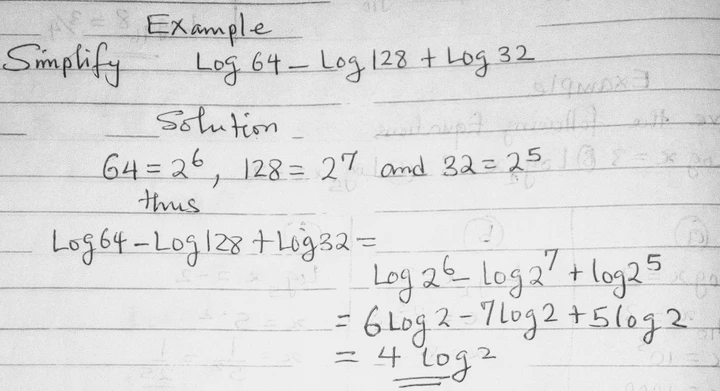 Example
Simplify Log 64 - Log 128 + Log 32
Solution
64 = 2⁶, 128 = 2⁷ and 32 = 2⁵
thus
Log64 - Log128 + Log32 =
Log 2⁶ - log 2⁷ + log2⁵
= 6 Log 2 - 7 log 2 + 5 log 2
= 4 log 2